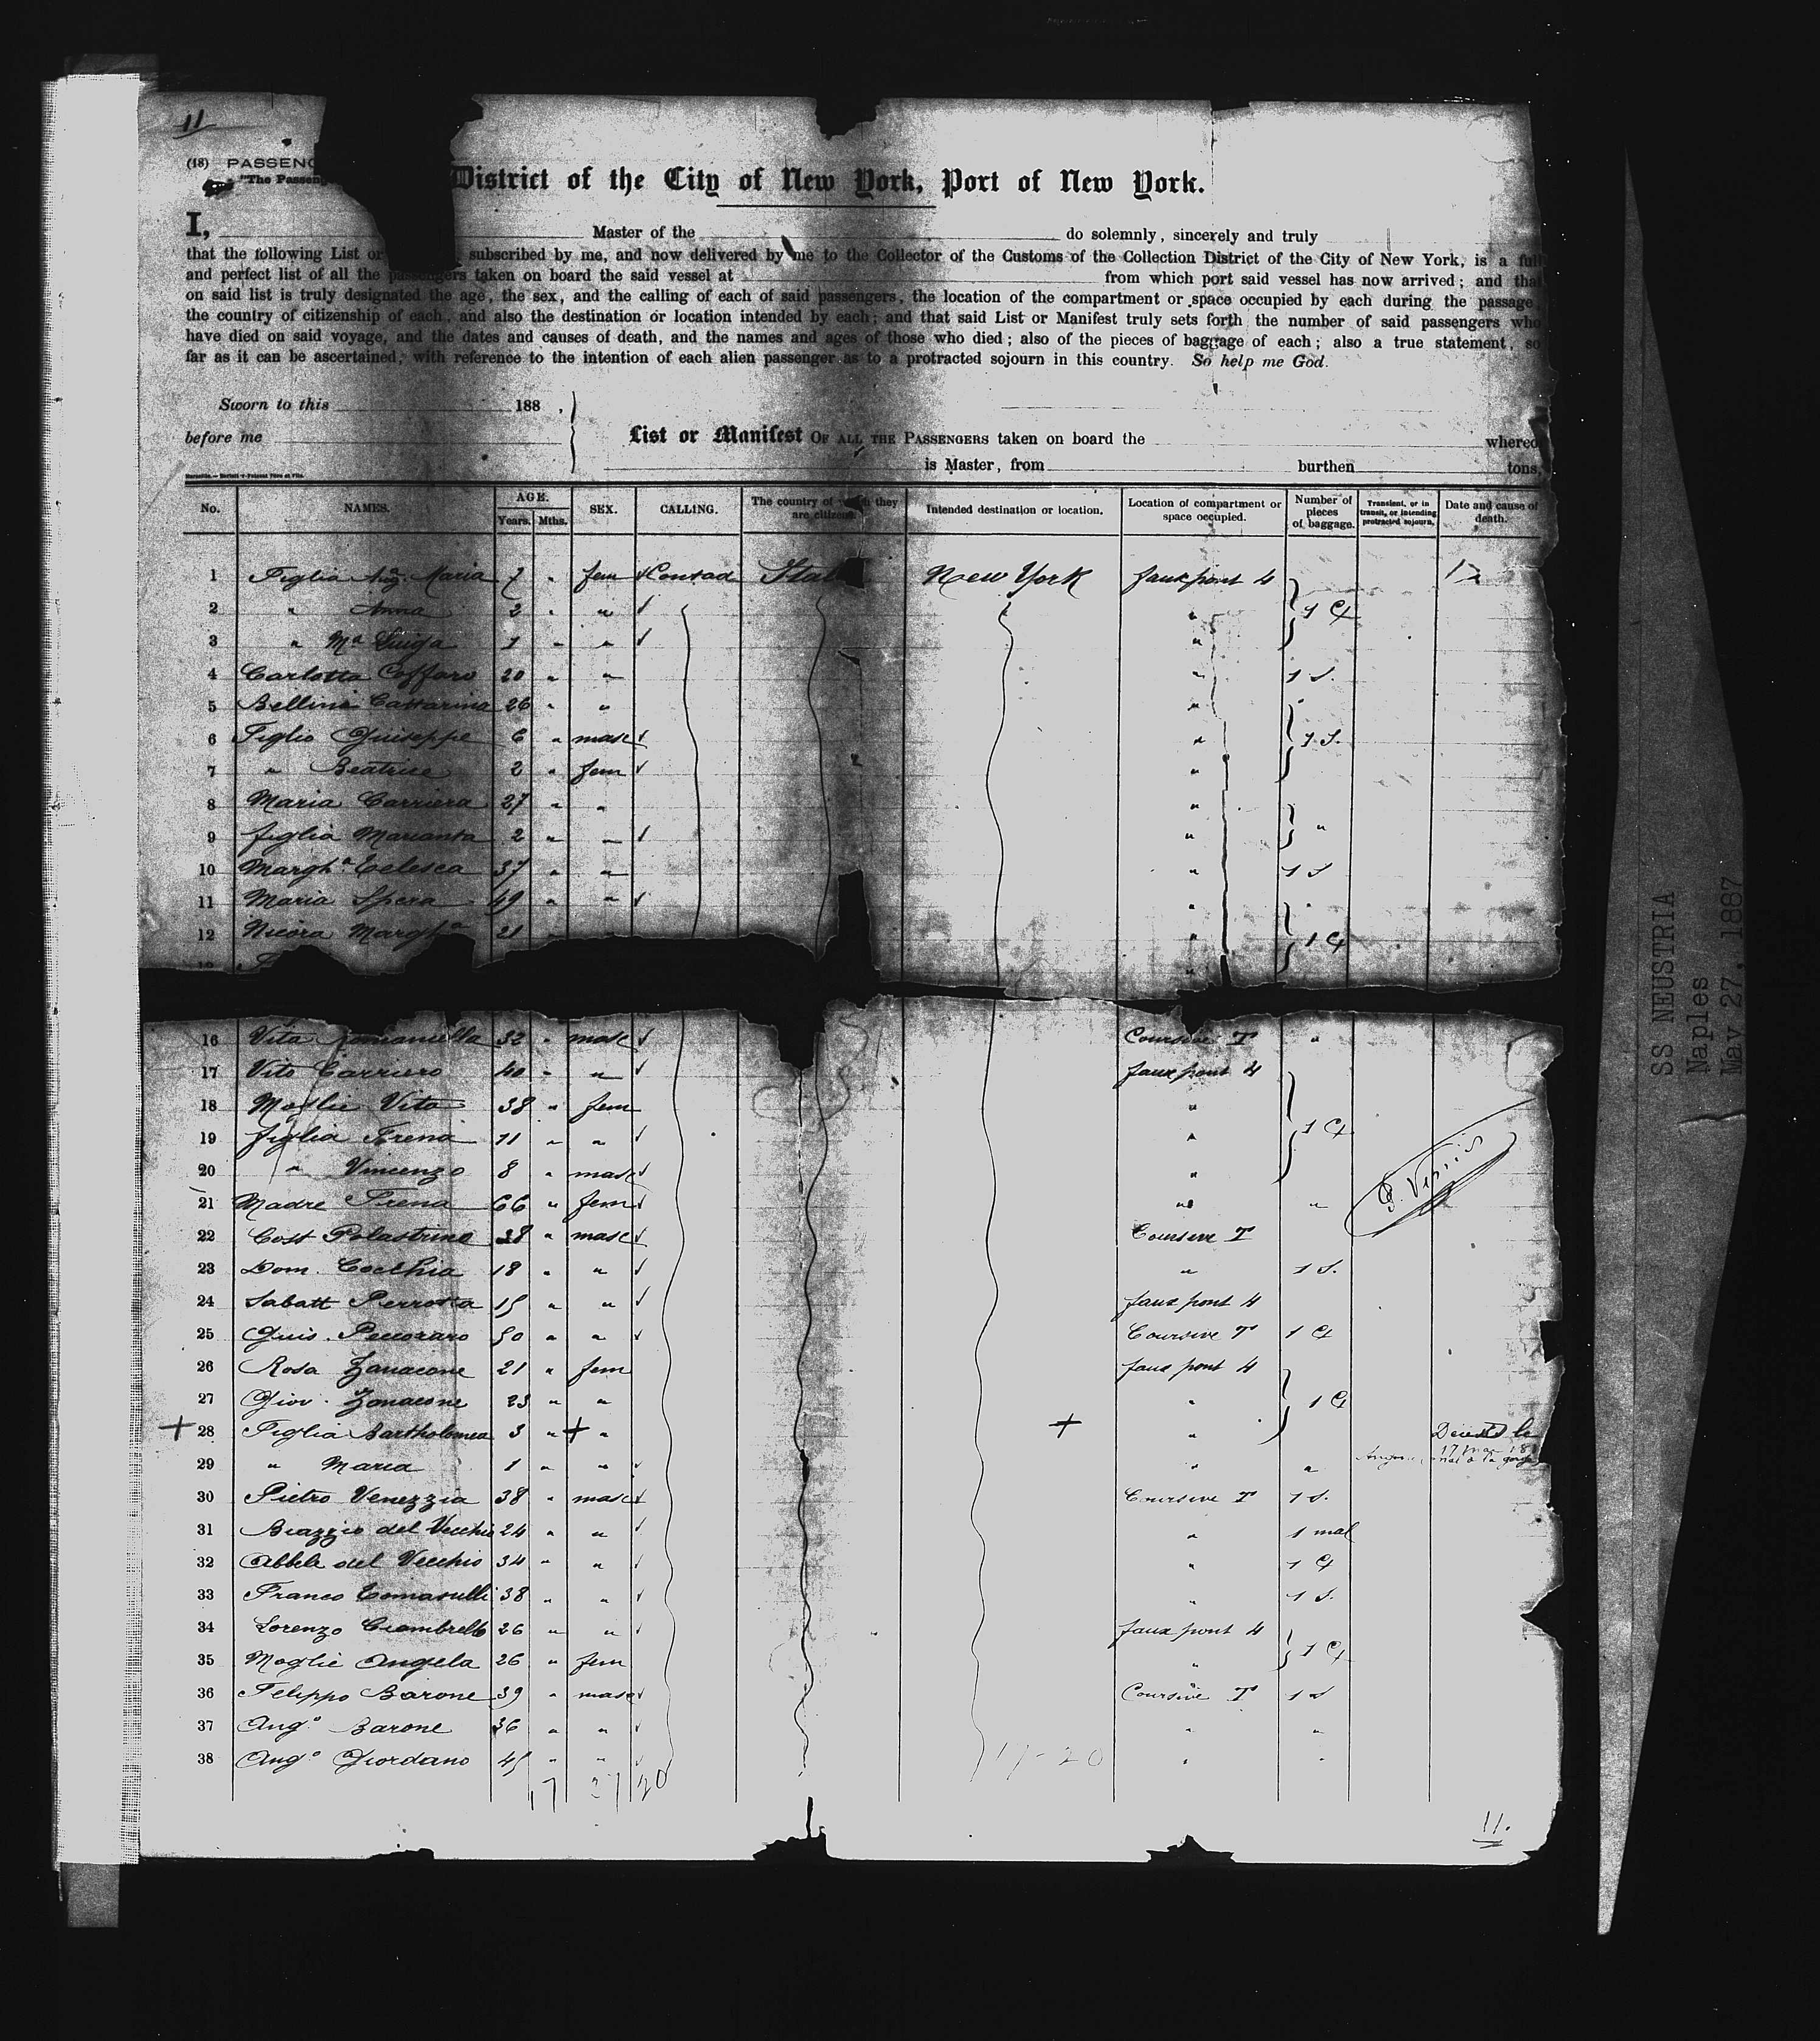 11
(18) PASSENG
"The Passeng
District of the City of New York, Port of New York.
I, Master of the do solemnly, sincerely and truly
that the following List or subscribed by me, and now delivered by me to the Collector of the Customs of the Collection District of the City of New York, is a full
and perfect list of all the passengers taken on board the said vessel at from which port said vessel has now arrived; and that
on said list is truly designated the age, the sex, and the calling of each of said passengers, the location of the compartment or space occupied by each during the passage
the country of citizenship of each, and also the destination or location intended by each; and that said List or Manifest truly sets forth the number of said passengers who
have died on said voyage, and the dates and causes of death, and the names and ages of those who died; also of the pieces of baggage of each; also a true statement, so
far as it can be ascertained, with reference to the intention of each alien passenger as to a protracted sojourn in this country. So help me God.
Sworn to this 188 ,
before me List or Manifest OF ALL THE PASSENGERS taken on board the whereo
is Master, from burthen tons,
No. NAMES. AGE. Years. Mths. SEX. CALLING. The country of which they are citizens. Intended destination or location. Location of compartment or space occupied. Number of pieces of baggage. Transient, or in transit, or intending protracted sojourn. Date and cause of death.
1 Figlia Maria 7 " fem Ital New York faux pont 4
2 " Anna 2 " " " 1 C
3 " Ma Luiga 1 " " "
4 Carlotta Coffaro 20 " " " 1 S.
5 Bellini Cattarina 26 " " "
6 Figlio Guiseppe 6 " masc " 1 S.
7 " Beatrice 2 " fem "
8 Maria Carriera 27 " " "
9 figlia Marianta 2 " " " "
10 Margha Telesca 37 " " " 1 S
11 Maria Spera 49 " " "
12 Margha 21 " 1 C
16 Vita Romaniella 32 " masc Coursive T "
17 Vito Carriero 40 " " faux pont 4
18 Moglie Vita 38 " fem "
19 figlia Frena 11 " " " 1 C
20 " Vincenzo 8 " masc "
21 Madre Frena 66 " fem " "
22 Cost Polastrino 38 " masc Coursive T
23 Dom. Cocchia 18 " " " 1 S.
24 Sabatt Perrotta 15 " " faux pont 4
25 Guis. Peccoraro 50 " " Coursive T 1 C
26 Rosa Zanacone 21 " fem faux pont 4
27 Giov. Zonacone 23 " " " 1 C
+ 28 Figlia Bartholomea 3 " + " + "
17 mai 18
29 " Maria 1 " " " "
30 Pietro Venezzia 38 " masc Coursive T 1 S.
31 Biazzio del Vecchio 24 " " " 1 mal
32 del Vecchio 34 " " " 1 C
33 Franco Tomasulli 38 " " " 1 S.
34 Lorenzo Ciambrello 26 " " faux pont 4
35 Moglie Angela 26 " fem " 1 C
36 Felippo Barone 39 " masc Coursive T 1 S
37 Ango Barone 36 " " " "
38 Ango Giordano 45 " " " "
17 37 20 17-20
11.
SS NEUSTRIA
Naples
May 27, 1887